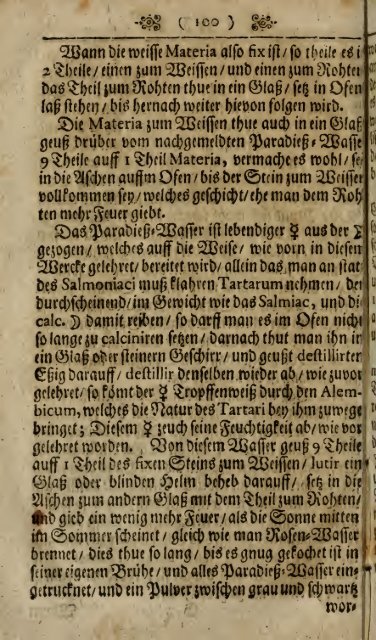 ( 100 )
Wann die weisse Materia also fix ist / so theile es i
2 Theile / einen zum Weissen / und einen zum Rohten
das Theil zum Rohten thue in ein Glaß / setz in Ofen
laß stehen / bis hernach weiter hievon folgen wird.
Die Materia zum Weissen thue auch in ein Glaß
geuß drüber vom nachgemeldten Paradieß-Wasse
9 Theile auff 1 Theil Materia, vermache es wohl / se
in die Aschen auffm Ofen / bis der Stein zum Weissen
vollkommen sey / welches geschicht / ehe man dem Roh
ten mehr Feuer giebt.
Das Paradieß-Wasser ist lebendiger ☿ aus der
gezogen / welches auff die Weise / wie vorn in diesem
Wercke gelehret / bereitet wird / allein das man an stat
des Salmoniaci muß klahren Tartarum nehmen / der
durchscheinend / im Gewicht wie das Salmiac, und die
calc. ☽ damit reiben / so darff man es im Ofen nicht
so lange zu calciniren setzen / darnach thut man ihn in
ein Glaß oder steinern Geschirr / und geußt destillirten
Eßig darauff / destillir denselben wieder ab / wie zuvor
gelehret / so kömt der ☿ Tropffenweiß durch den Alem-
bicum, welches die Natur des Tartari bey ihm zuwege
bringet; Diesem ☿ zeuch seine Feuchtigkeit ab / wie vor
gelehret worden. Von diesem Wasser geuß 9 Theile
auff 1 Theil des fixen Steins zum Weissen / lutir ein
Glaß oder blinden Helm beheb darauff / setz in die
Aschen zum andern Glaß mit dem Theil zum Rohten /
und gieb ein wenig mehr Feuer / als die Sonne mitten
im Sommer scheinet / gleich wie man Rosen-Wasser
brennet / dies thue so lang / bis es gnug gekochet ist in
seiner eigenen Brühe / und alles Paradieß-Wasser ein-
getrucknet / und ein Pulver zwischen grau und schwartz
wor-